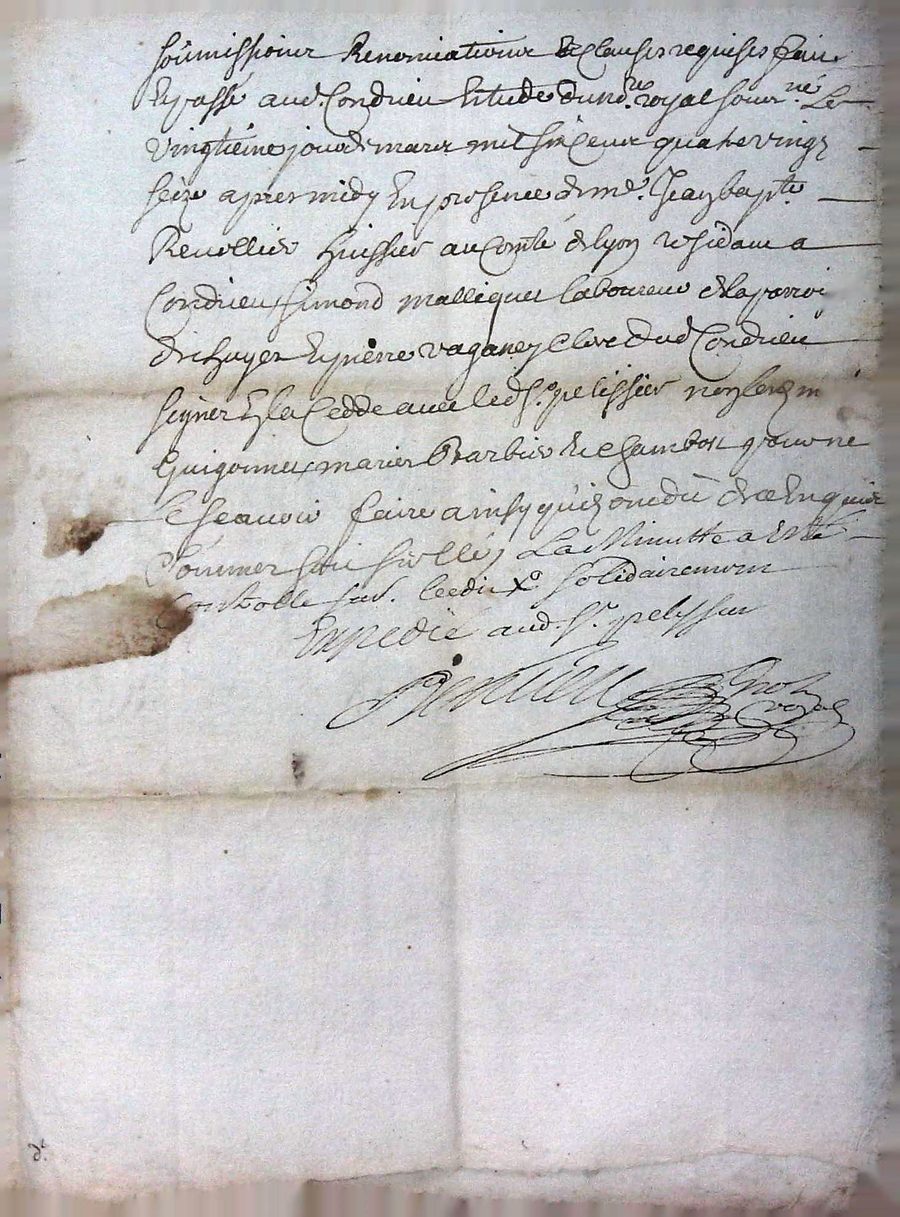 soumissions Renonciations & clauses requises fait
Et passé aud. Condrieu Estude du no.re royal sousn.né Le
vingtieme jour de mars mil six cent quatre vingt
seize apres midy En presence de me. Jean bapte.
Revollier huissier au Comté de lyon residant a
Condrieu, simond malliquet laboureur de la parroi
Et pierre vaganey clerc dud Condrieu
signer Es la Cedde avec led Sr. pelissier non les
Guigonnet marier Barbier de chambost pour ne
scavoir faire ainsy quils ont dit de ce Enquis
sommer suiv. La Minutte a esté
Controllé suiv. Ledit solidairement
Expedié aud. Sr. pelissier
not.
royal
d.t